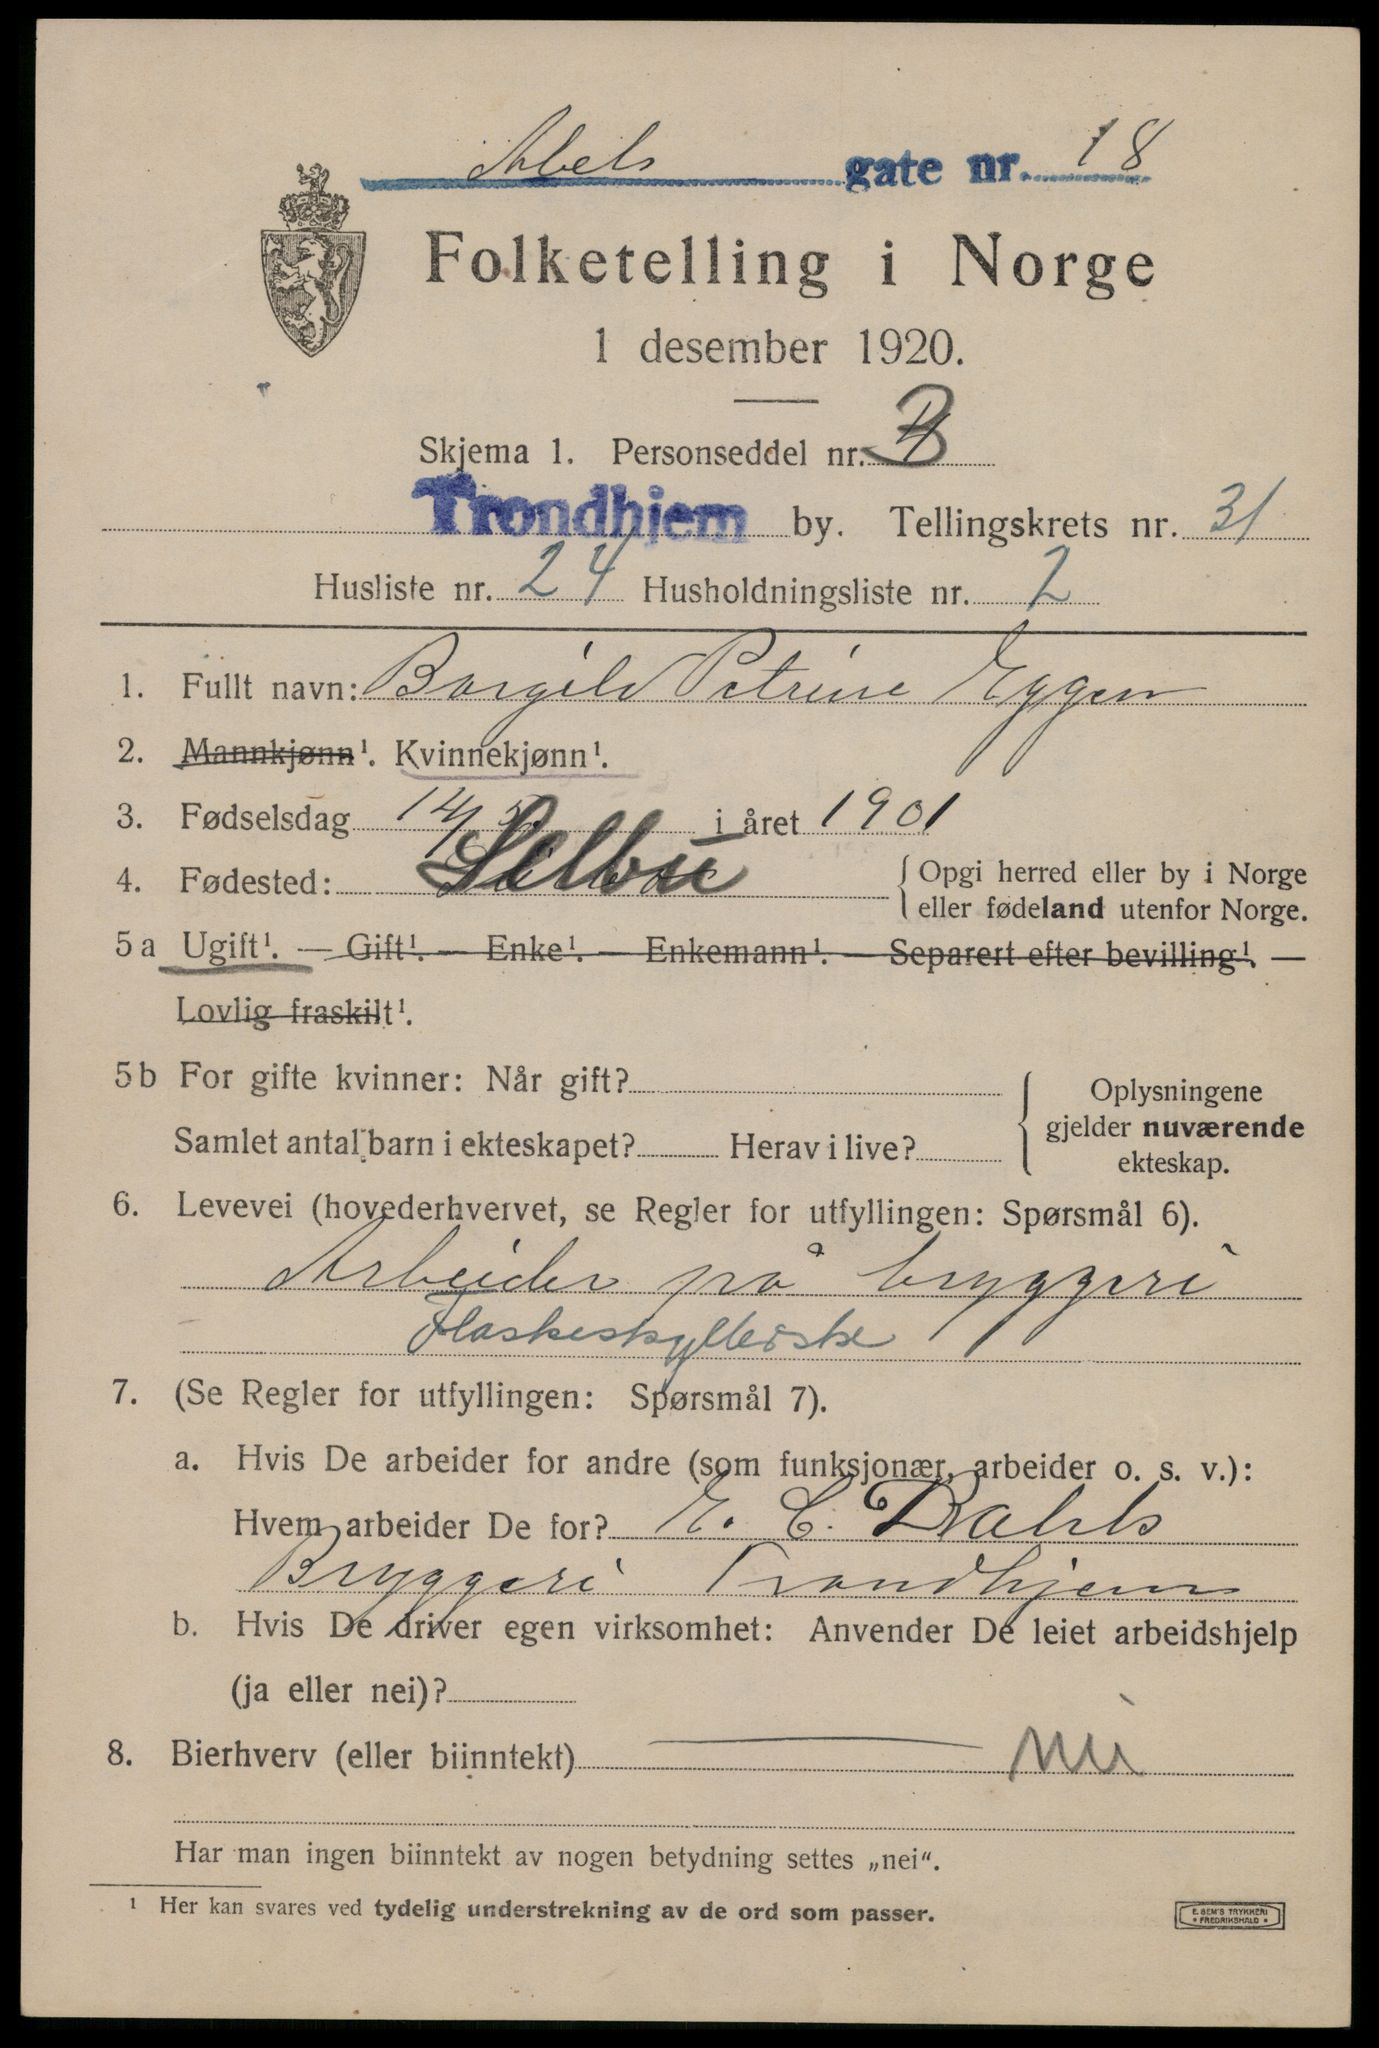 Abels gate nr. 18
Folketelling i Norge
1 desember 1920.
Skjema 1. Personseddel nr.
Trondhjem by. Tellingskrets nr. 31
Husliste nr. 24 Husholdningsliste nr. 2
1. Fullt navn: Borgild Petrine Eggen
2. Mannkjønn¹. Kvinnekjønn¹.
3. Fødselsdag 14/5 i året 1901
4. Fødested: Selbu { Opgi herred eller by i Norge
eller fødeland utenfor Norge.
5a Ugift¹. — Gift¹. — Enke¹. — Enkemann¹. — Separert efter bevilling¹. —
Lovlig fraskilt¹.
5b For gifte kvinner: Når gift? { Oplysningene
gjelder nuværende
ekteskap.
Samlet antal barn i ekteskapet? Herav i live?
6. Levevei (hovederhvervet, se Regler for utfyllingen: Spørsmål 6).
Arbeider på bryggeri
Flaskeskyllerske
7. (Se Regler for utfyllingen: Spørsmål 7).
a. Hvis De arbeider for andre (som funksjonær, arbeider o. s. v.):
Hvem arbeider De for? E. C. Dahls
Bryggeri Trondhjem
b. Hvis De driver egen virksomhet: Anvender De leiet arbeidshjelp
(ja eller nei)?
8. Bierhverv (eller biinntekt) nei
Har man ingen biinntekt av nogen betydning settes „nei“.
¹ Her kan svares ved tydelig understrekning av de ord som passer.
E. SEM'S TRYKKERI
* FREDRIKSHALD *